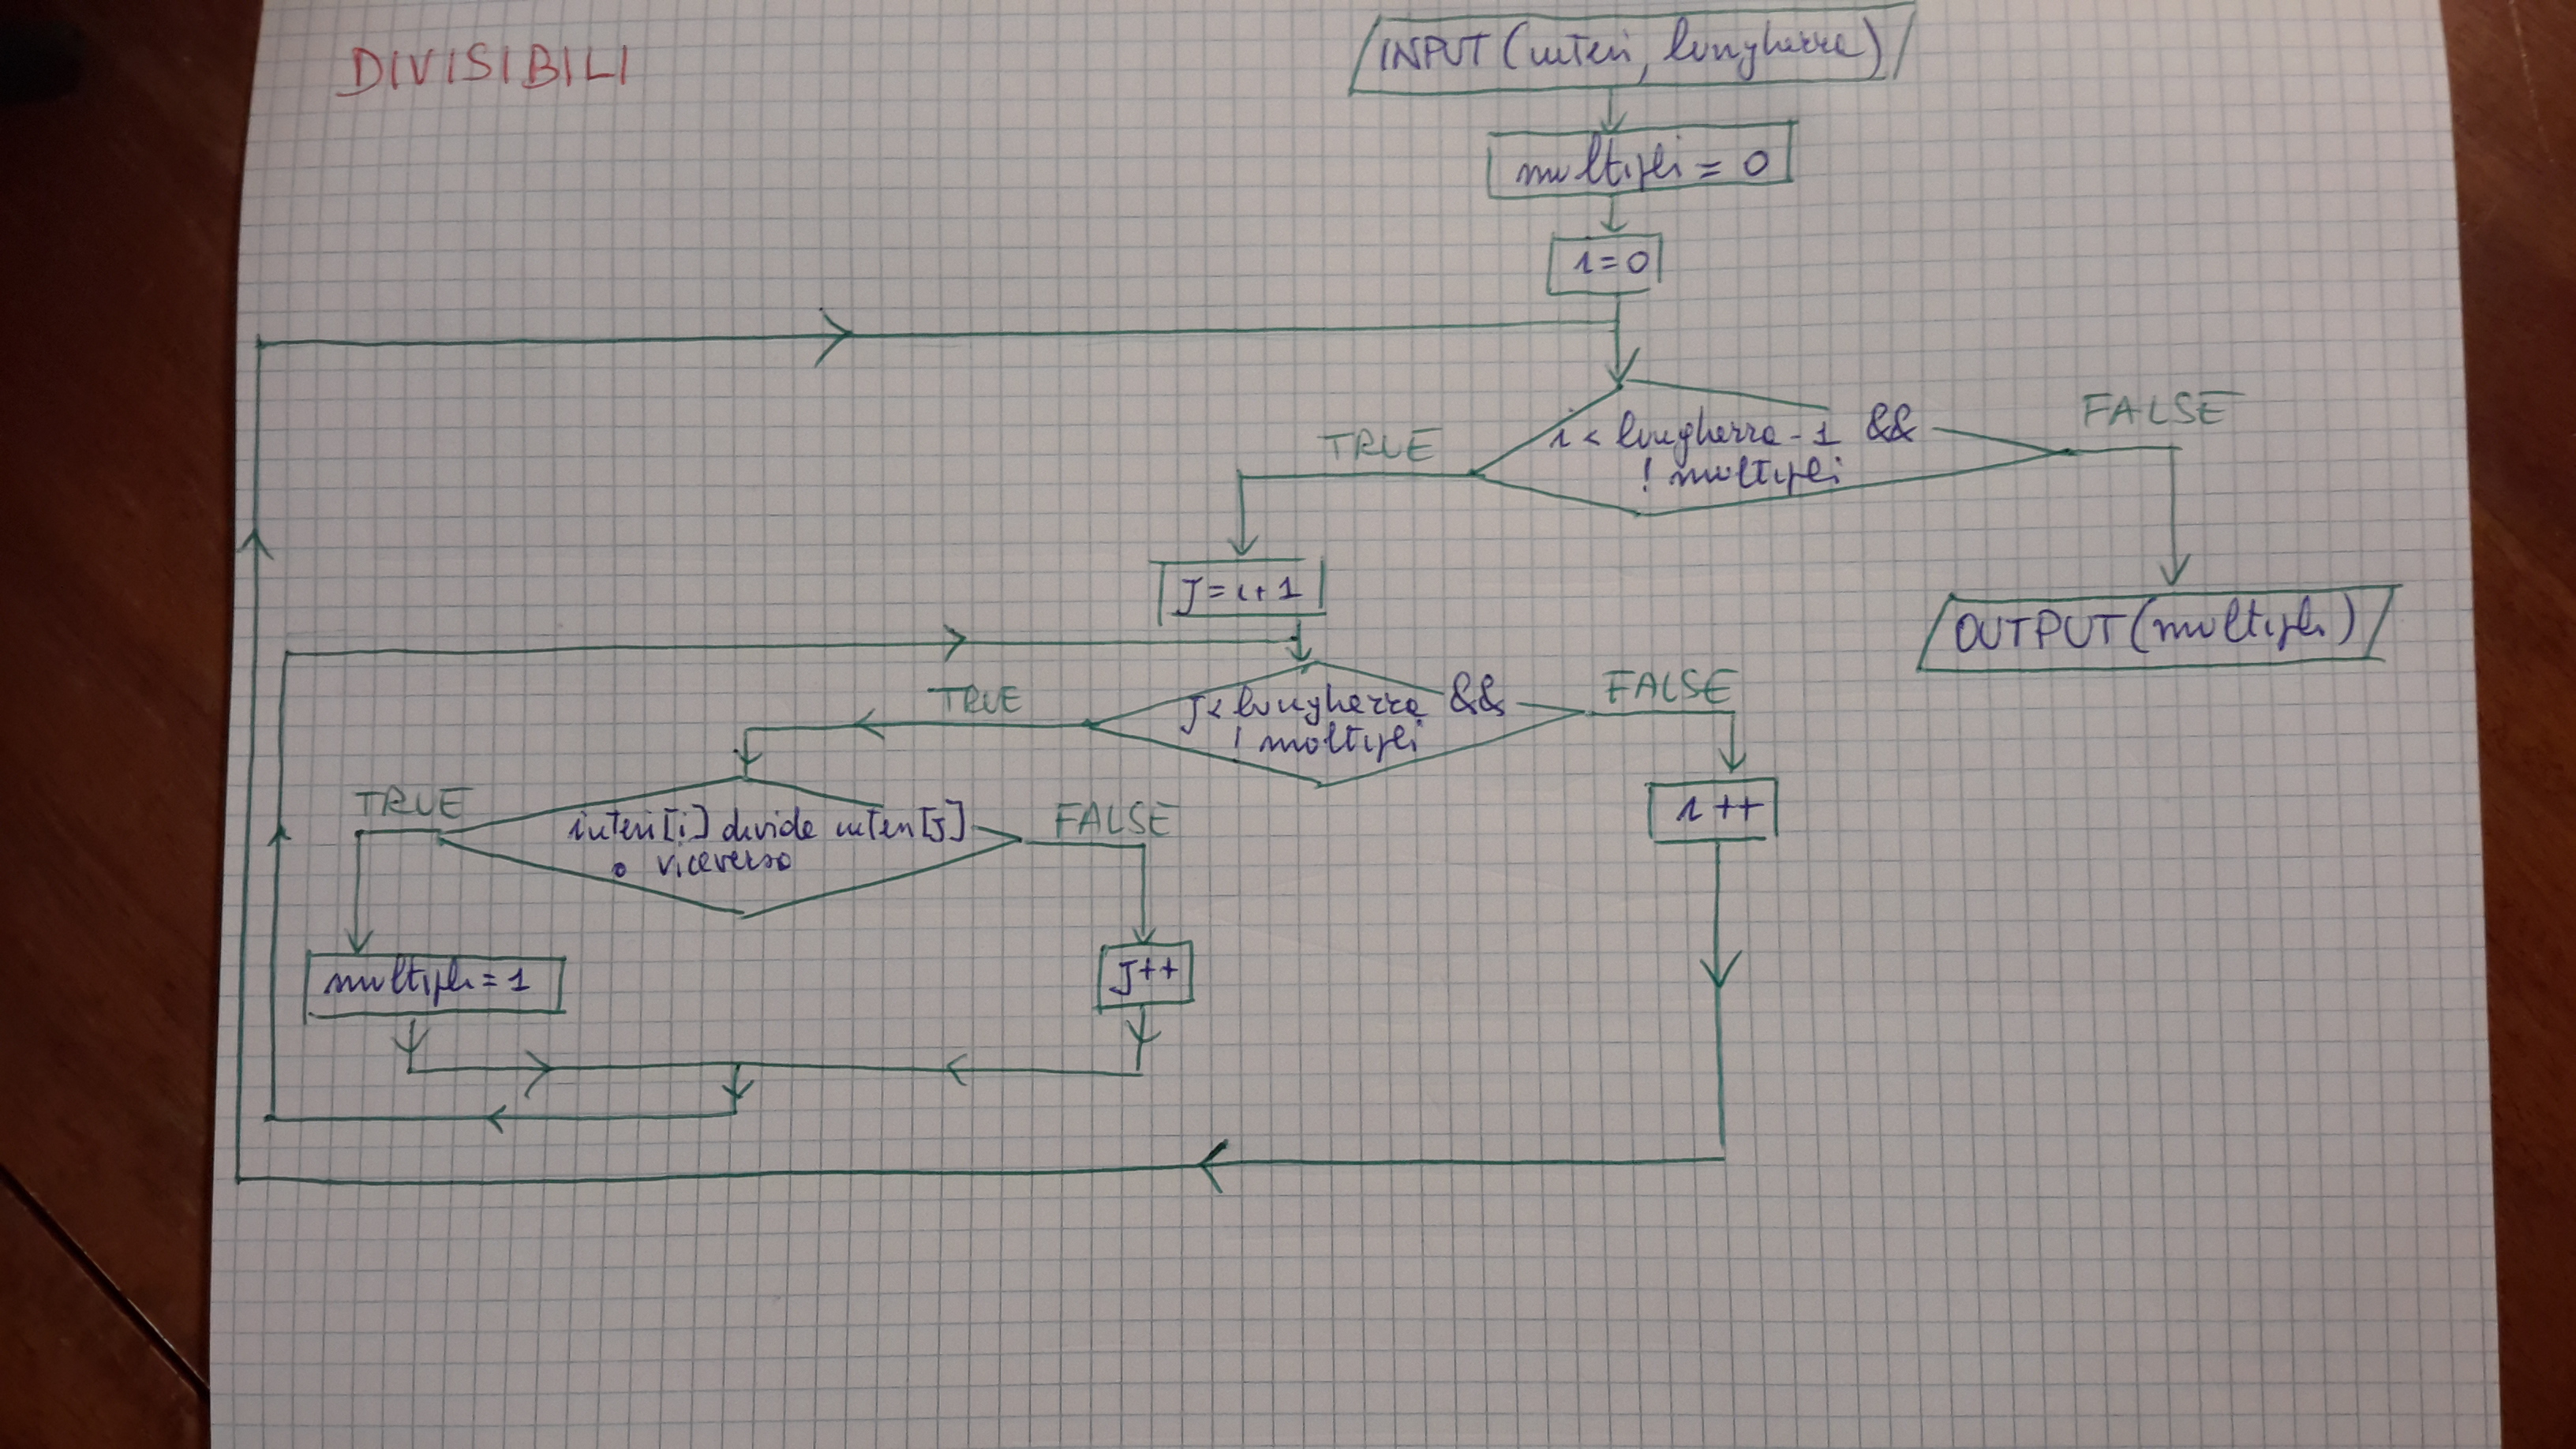 DIVISIBILI
INPUT (interi, lunghezza)
multipli = 0
i=0
i < lunghezza - 1 &&
! multipli
TRUE
FALSE
J = i + 1
OUTPUT (multipli)
J < lunghezza &&
! moltipli
TRUE
FALSE
interi[i] divide interi[J]
o viceverso
TRUE
FALSE
i ++
multipli = 1
J++